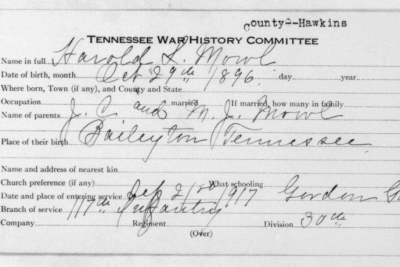 County--Hawkins
TENNESSEE WAR HISTORY COMMITTEE
Name in full Harold L. Mowl
Date of birth, month Oct 29th 1896. day year.
Where born, Town (if any), and County and State
Occupation married If married, how many in family
Name of parents J. C. and M. J. Mowl
Place of their birth Baileyton Tennessee
Name and address of nearest kin
Church preference (if any) What schooling
Date and place of entering service Sep 21st 1917 Gordon
Branch of service 117th Infantry
Company Regiment Division 30th
(Over)